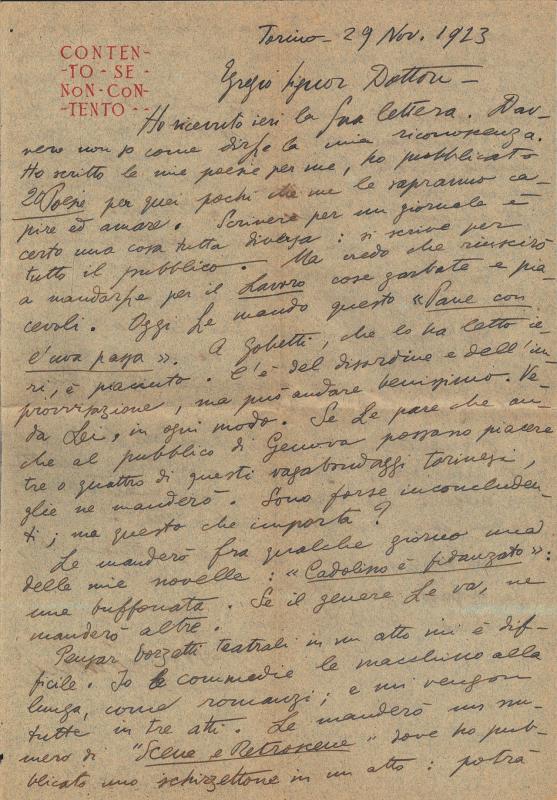 CONTEN-
-TO - SE -
NON - CON-
-TENTO - -
Torino - 29 Nov. 1923
Egregio Signor Dottore -
Ho ricevuto ieri la Sua lettera. Dav-
vero non so come dirle la mia riconoscenza.
Ho scritto le mie poesie per me, ho pubblicato
per quei pochi che me le sapranno ca-
pire ed amare. Scrivere per un giornale è
certo una cosa tutta diversa: si scrive per
tutto il pubblico. Ma credo che riuscirò
a mandarle per il Lavoro cose garbate e pia-
cevoli. Oggi Le mando questo «Pane con
l'uva passa». A Gobetti, che lo ha letto ie-
ri, è piaciuto. C'è del disordine e dell'im-
provvisazione, ma può andare benissimo. Ve-
da Lei, in ogni modo. Se Le pare che an-
che al pubblico di Genova possano piacere
tre o quattro di questi vagabondaggi torinesi,
glie ne manderò. Sono forse inconcluden-
ti; ma questo che importa?
Le manderò fra qualche giorno una
delle mie novelle: «Cadolino è fidanzato»:
una buffonata. Se il genere Le va, ne
manderò altre.
Pensar bozzetti teatrali in un atto mi è dif-
ficile. Io le commedie le macchino alla
lunga, come romanzi; e mi vengon
tutte in tre atti. Le manderò un nu-
mero di "Scene e Retroscene" dove ho pub-
blicato uno schizzettone in un atto: potrà